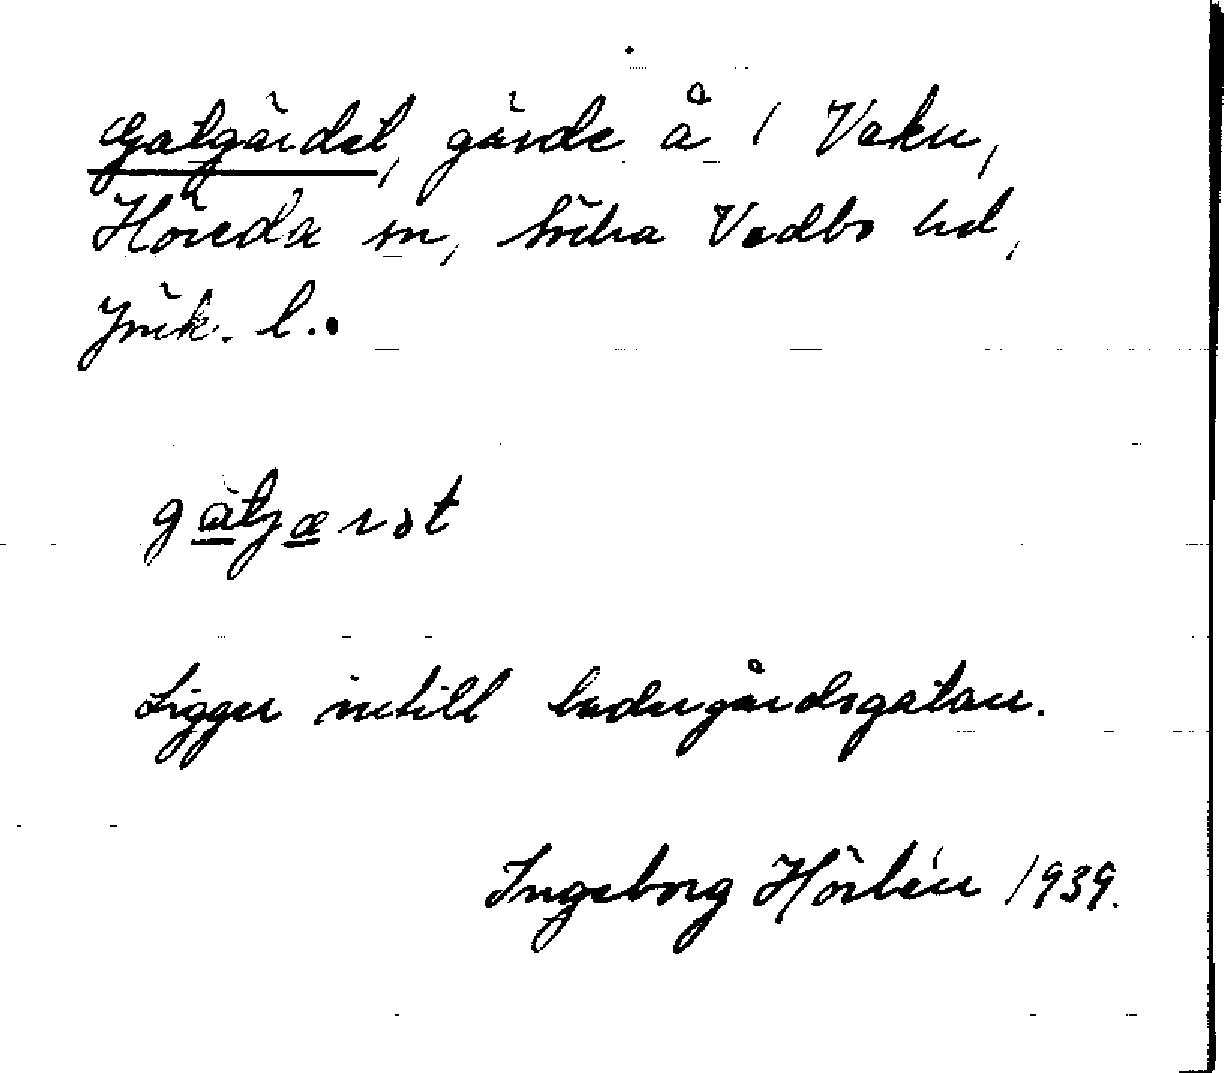 Gatgärdet, gärde å 1 Veku,
Höreda sn, Södra Vedbo hd,
Jönk. l.
Ligger intill ladugårdsgatan.
Ingeborg Hörlén 1939.